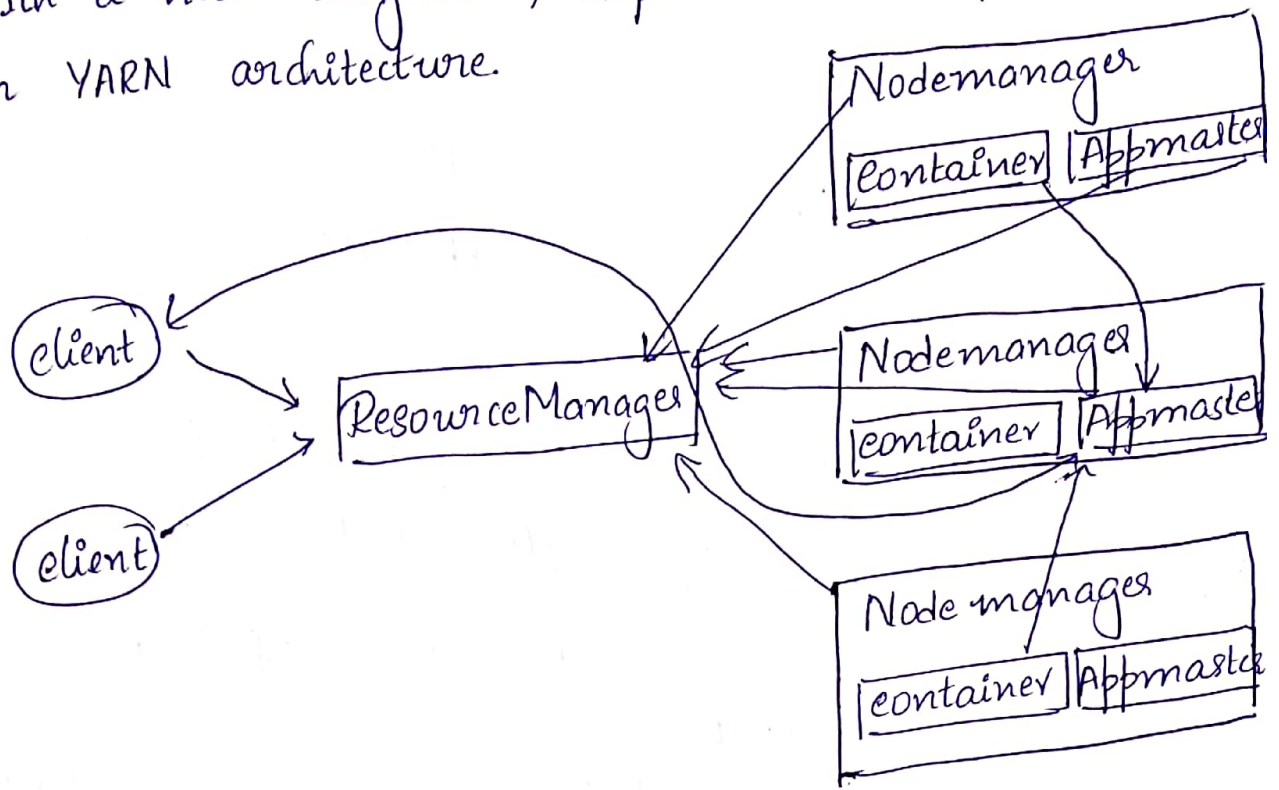 YARN architecture.
Nodemanager
container Appmaster
client
Nodemanager
ResourceManager
container Appmaste
client
Node manager
container Appmaste